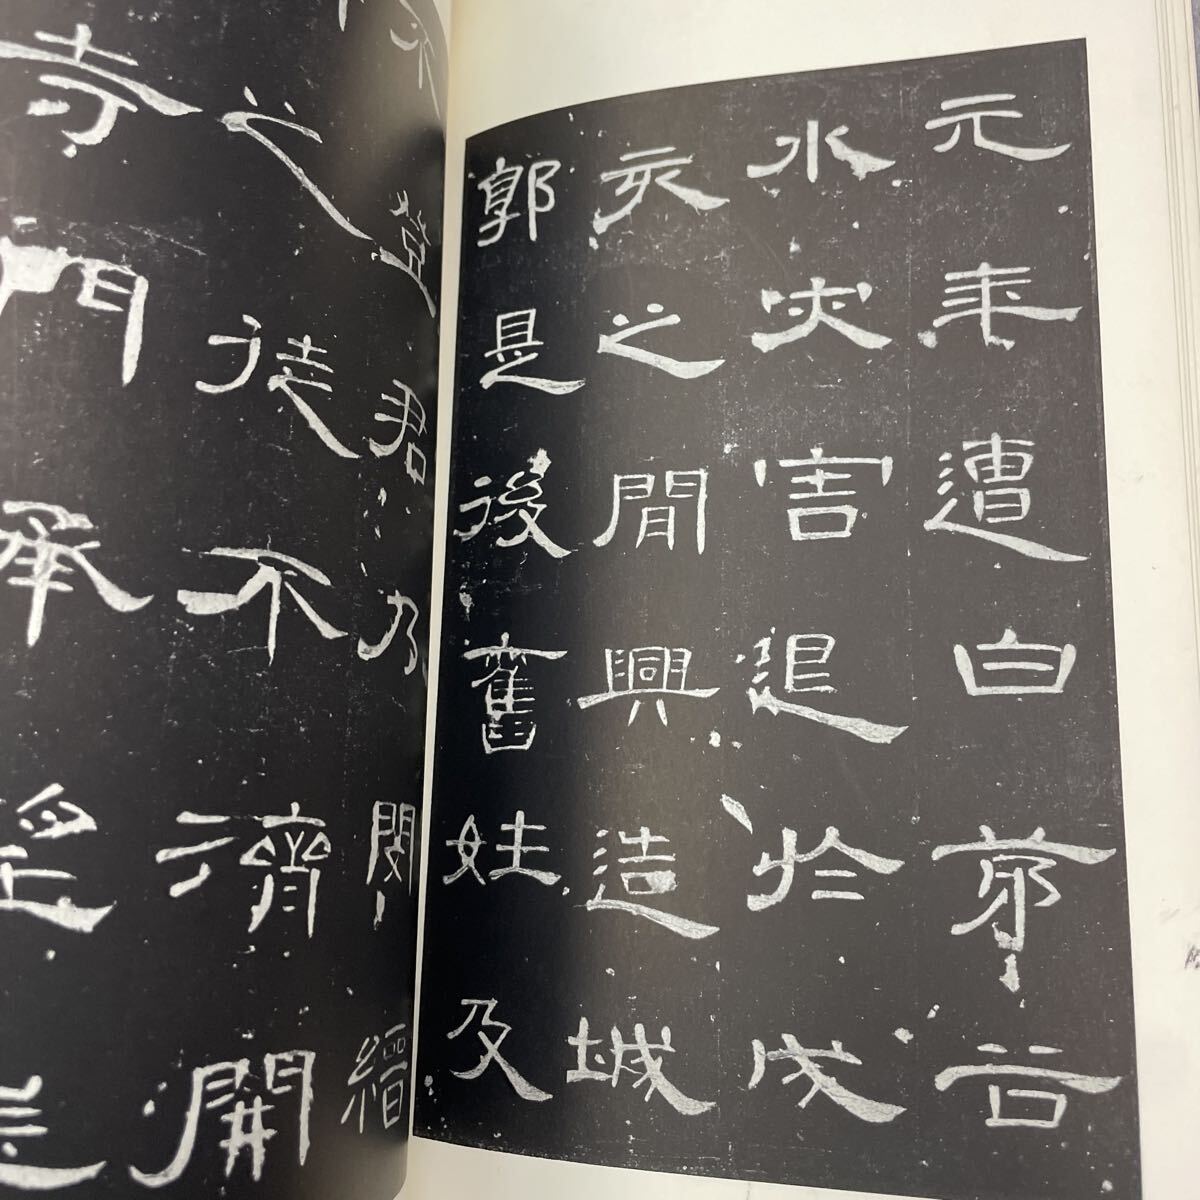 元年遭白茅谷
水灾害退於戌
亥之間興造城
郭是後舊姓及
不登君乃閔縉
之徒不濟開
寺門承望